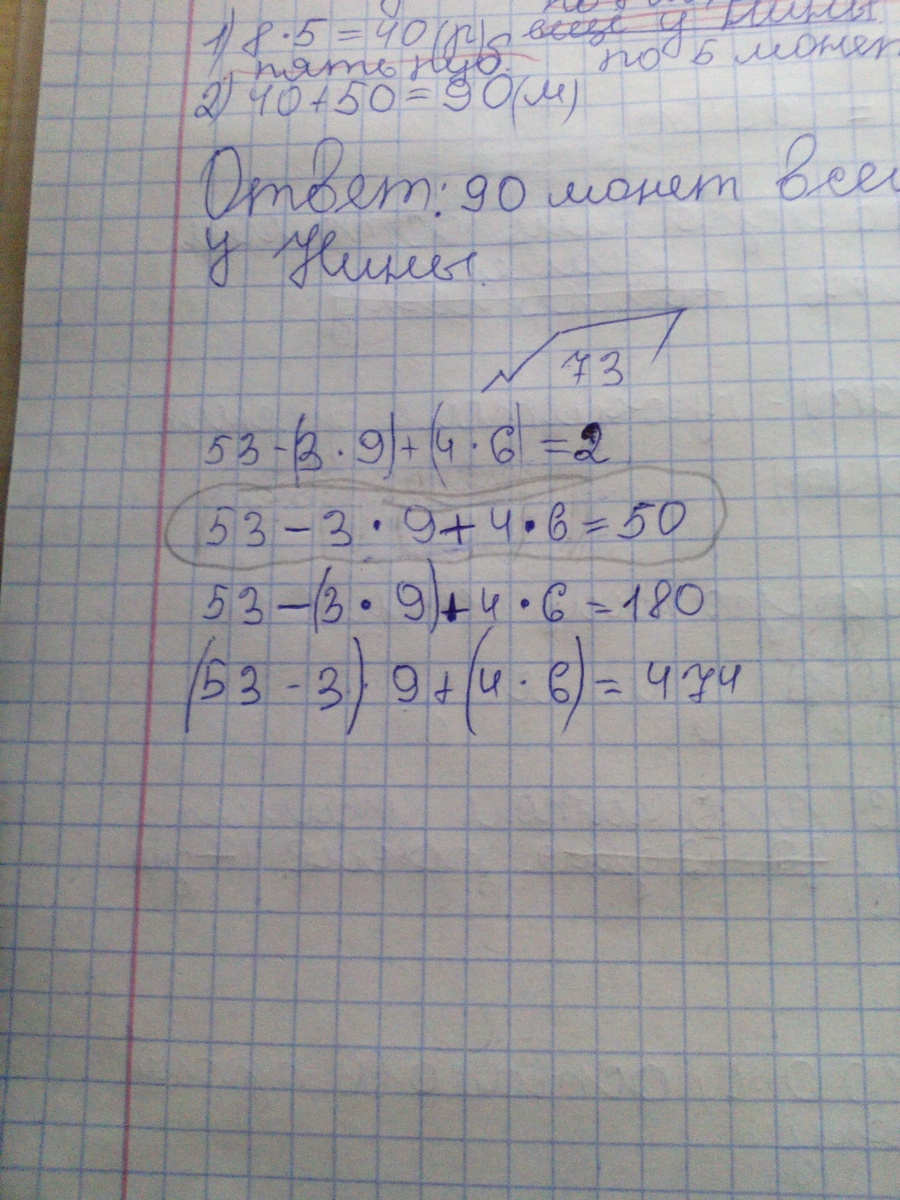 1) 8·5=40(р) еще у Нины
пять руб. по 5 монет
2) 40+50=90(м)
Ответ: 90 монет всег
у Нины.
73
53-(3·9)+(4·6)=2
53-3·9+4·6=50
53-(3·9)+4·6=180
(53-3)·9+(4·6)=474